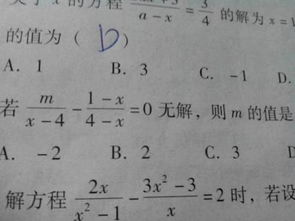 x 的方程 \frac{+3}{a-x}=\frac{3}{4} 的解为 x=
的值为 ( D )
A. 1 B. 3 C. -1 D.
若 \frac{m}{x-4}-\frac{1-x}{4-x}=0 无解，则 m 的值是
A. -2 B. 2 C. 3 D
解方程 \frac{2x}{x^2-1}-\frac{3x^2-3}{x}=2 时，若设